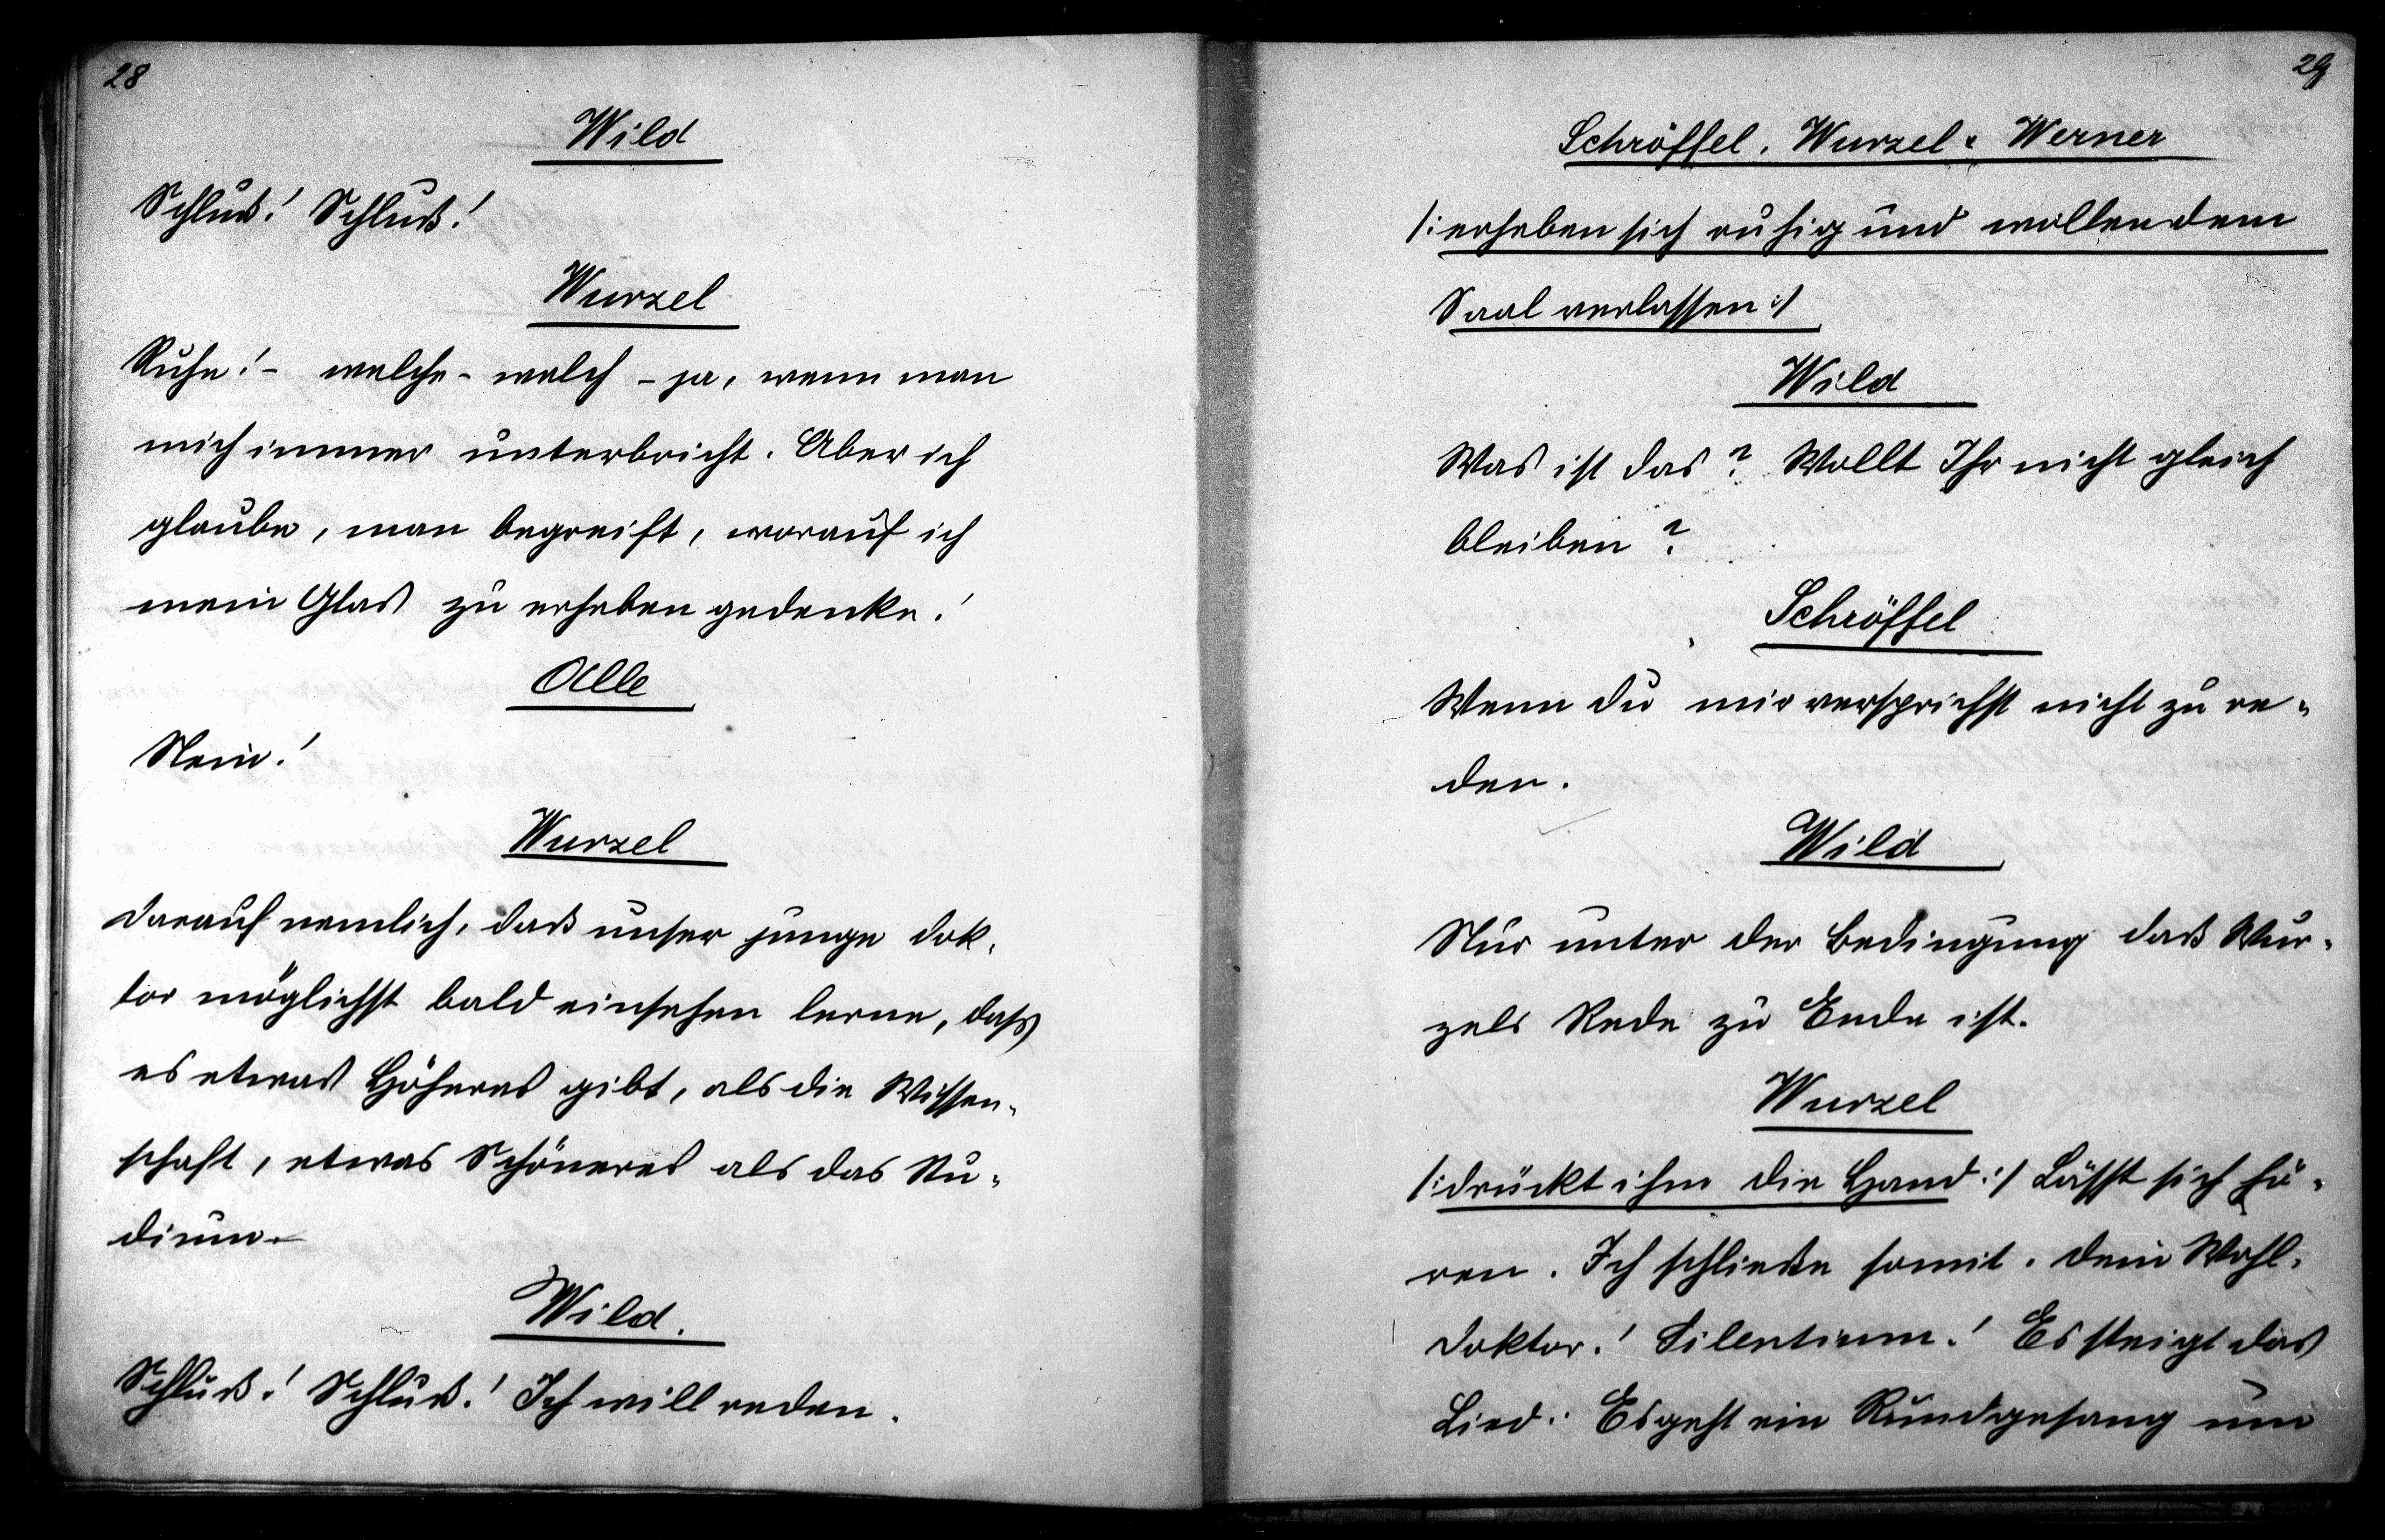 28
Wild
Schluß! Schluß!
Wurzel
Ruhe! - welche - welch - ja, wenn man
mich immer unterbricht. Aber ich
glaube, man begreift, worauf ich
mein Glas zu erheben gedenke!
Alle
Nein!
Wurzel
Darauf nemlich, daß unser junge Dok-
tor möglichst bald einsehen lerne, dass
es etwas Höheres gibt, als die Wissen-
schaft, etwas Schöneres als das Stu-
dium.
Wild.
Schluß! Schluß! Ich will reden.
29
Schröffel. Wurzel & Werner
/: erheben sich ruhig und wollen dem
Saal verlassen :/
Wild
Was ist das? Wollt Ihr nicht gleich
bleiben?
Schröffel
Wenn du mir versprichst nicht zu re-
den.
Wild
Nur unter der Bedingung daß Wur-
zels Rede zu Ende ist.
Wurzel
/: drückt ihm die Hand :/ Lässt sich hö-
ren. Ich schließe somit. Dein Wohl,
Doktor! Silentium! Es steigt das
Lied: Es geht ein Rundgesang um